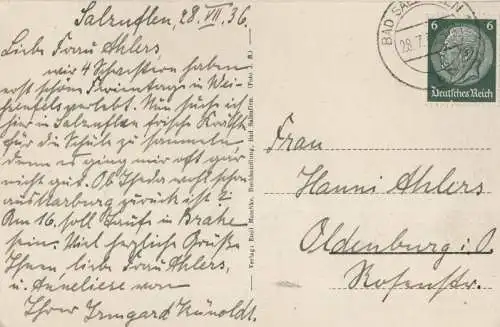 Salzuflen, 28. VII. 36.
Liebe Frau Ahlers,
wir 4 Schwestern haben
erst schöne Ferientage in Wei-
ßenfels verlebt. Nun suche ich
hier in Salzuflen frische Kräfte
für die Schule zu sammeln,
denn es ging mir oft gar
nicht gut. Ob Theda wohl schon
aus Marburg zurück ist?
Am 16. soll Taufe in Brake
sein. Viel herzliche Grüße
Ihnen, liebe Frau Ahlers,
u. Anneliese von
Ihrer Irmgard Künoldt.
Verlag: Buchhandlung, Bad Salzuflen. (Foto
BAD SALZUFLEN
28.7.
6 6
Deutsches Reich
Frau
Hanni Ahlers
Oldenburg i. O.
Rosenstr.